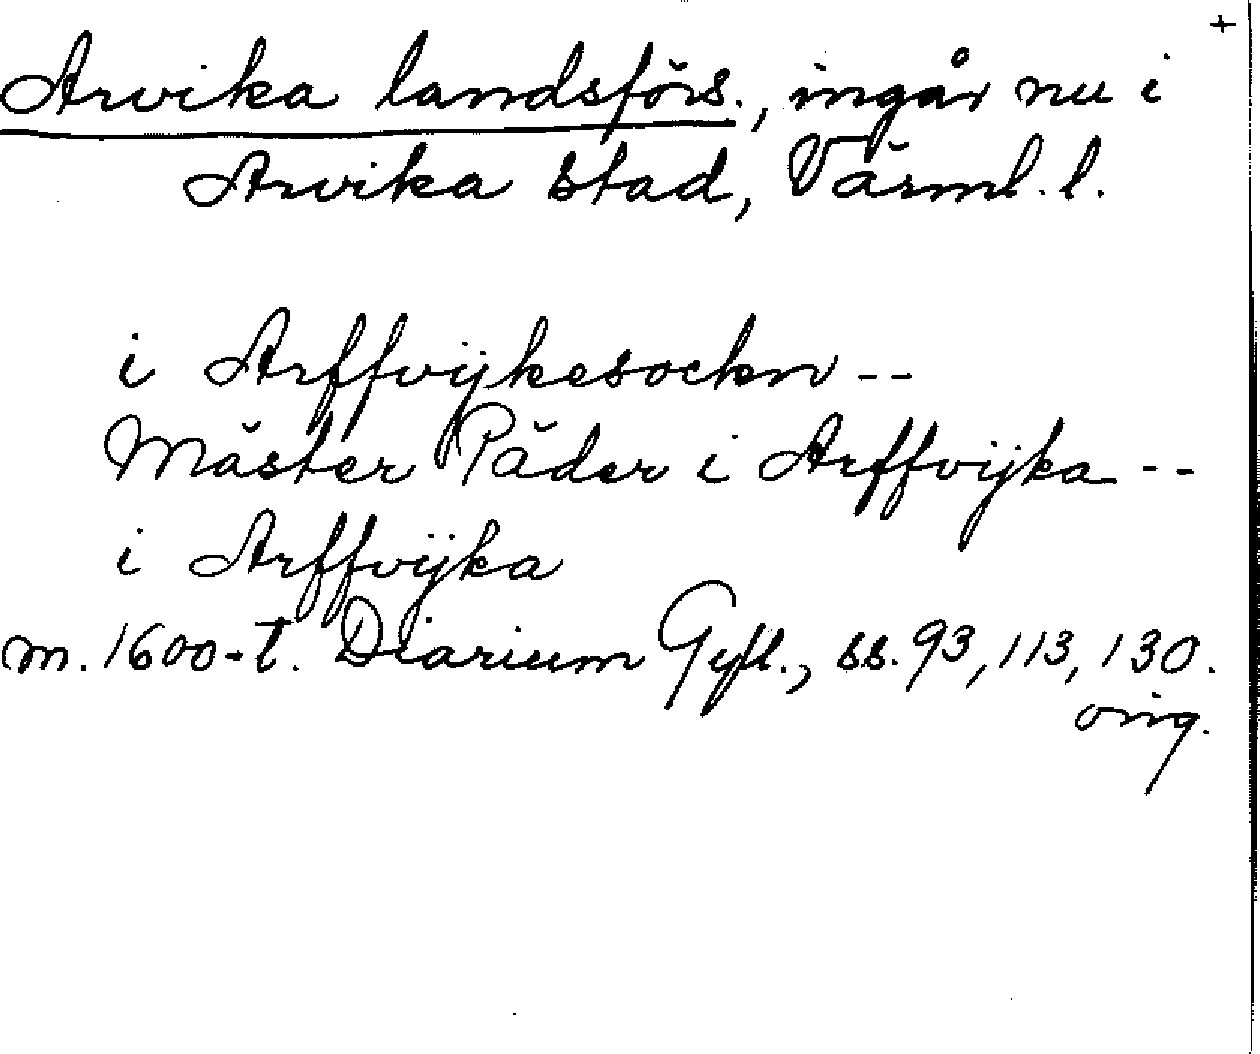 +
Arvika landsförs., ingår nu i
Arvika stad, Värml. l.
i Arffvijkesockn --
Mäster Päder i Arffvijka --
i Arffvijka
m. 1600-t. Diarium Gyll., ss. 93, 113, 130.
orig.